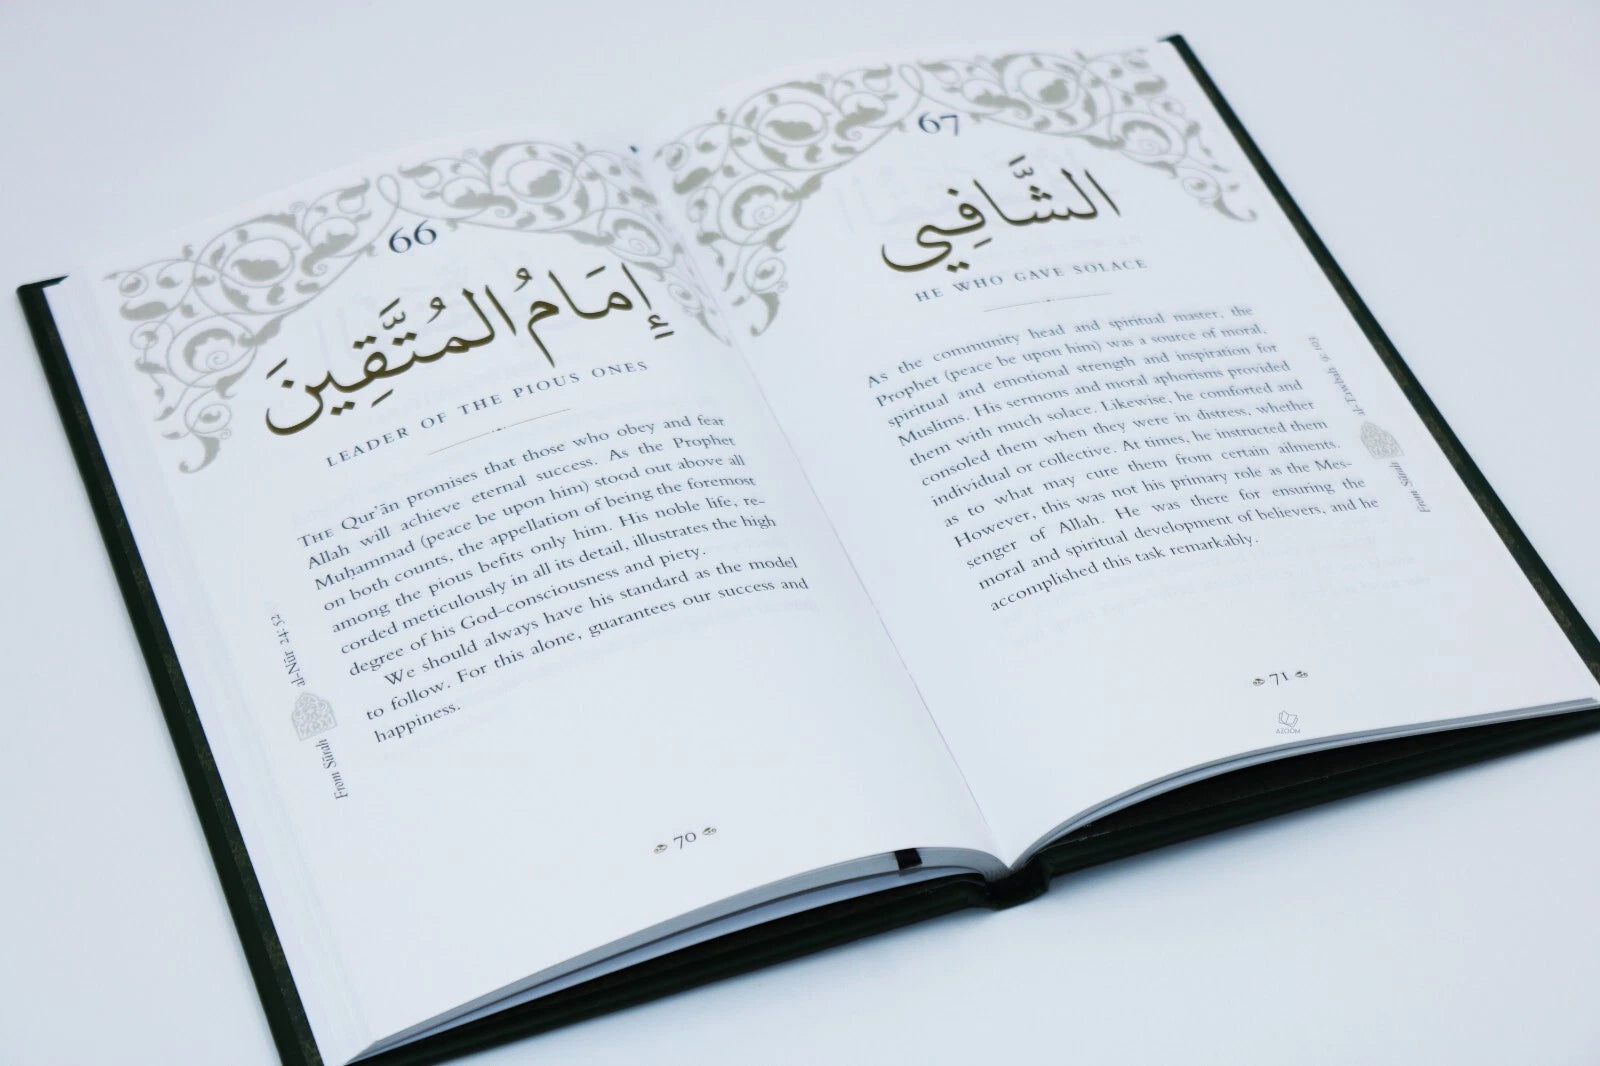 66
إِمَامُ المُتَّقِينَ
LEADER OF THE PIOUS ONES
THE Qur'ān promises that those who obey and fear
Allah will achieve eternal success. As the Prophet
Muḥammad (peace be upon him) stood out above all
on both counts, the appellation of being the foremost
among the pious befits only him. His noble life, re-
corded meticulously in all its detail, illustrates the high
degree of his God-consciousness and piety.
We should always have his standard as the model
to follow. For this alone, guarantees our success and
happiness.
From Sūrah
al-Nūr 24: 52
70
67
الشَّافِي
HE WHO GAVE SOLACE
As the community head and spiritual master, the
Prophet (peace be upon him) was a source of moral,
spiritual and emotional strength and inspiration for
Muslims. His sermons and moral aphorisms provided
them with much solace. Likewise, he comforted and
consoled them when they were in distress, whether
individual or collective. At times, he instructed them
as to what may cure them from certain ailments.
However, this was not his primary role as the Mes-
senger of Allah. He was there for ensuring the
moral and spiritual development of believers, and he
accomplished this task remarkably.
al-Tawbah 9: 103
From Sūrah
71
AZOOM